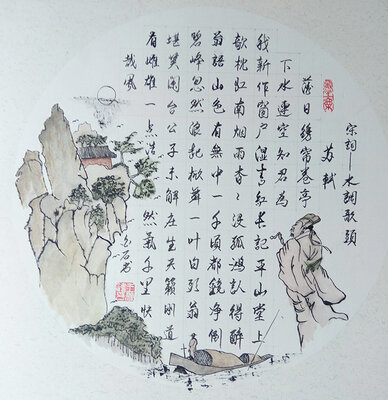 宋詞—水調歌頭
苏轼
落日绣帘卷亭
下水連空知君為
我新作窗户湿青红長记平山堂上
欹枕江南烟雨杳〻没孤鸿認得醉
翁語山色有無中一千頃都鏡净倒
碧峰忽然浪起掀舞一叶白頭翁
堪笑蘭台公子未解莊生天籟刚道
有雌雄一点浩然氣千里快
哉風